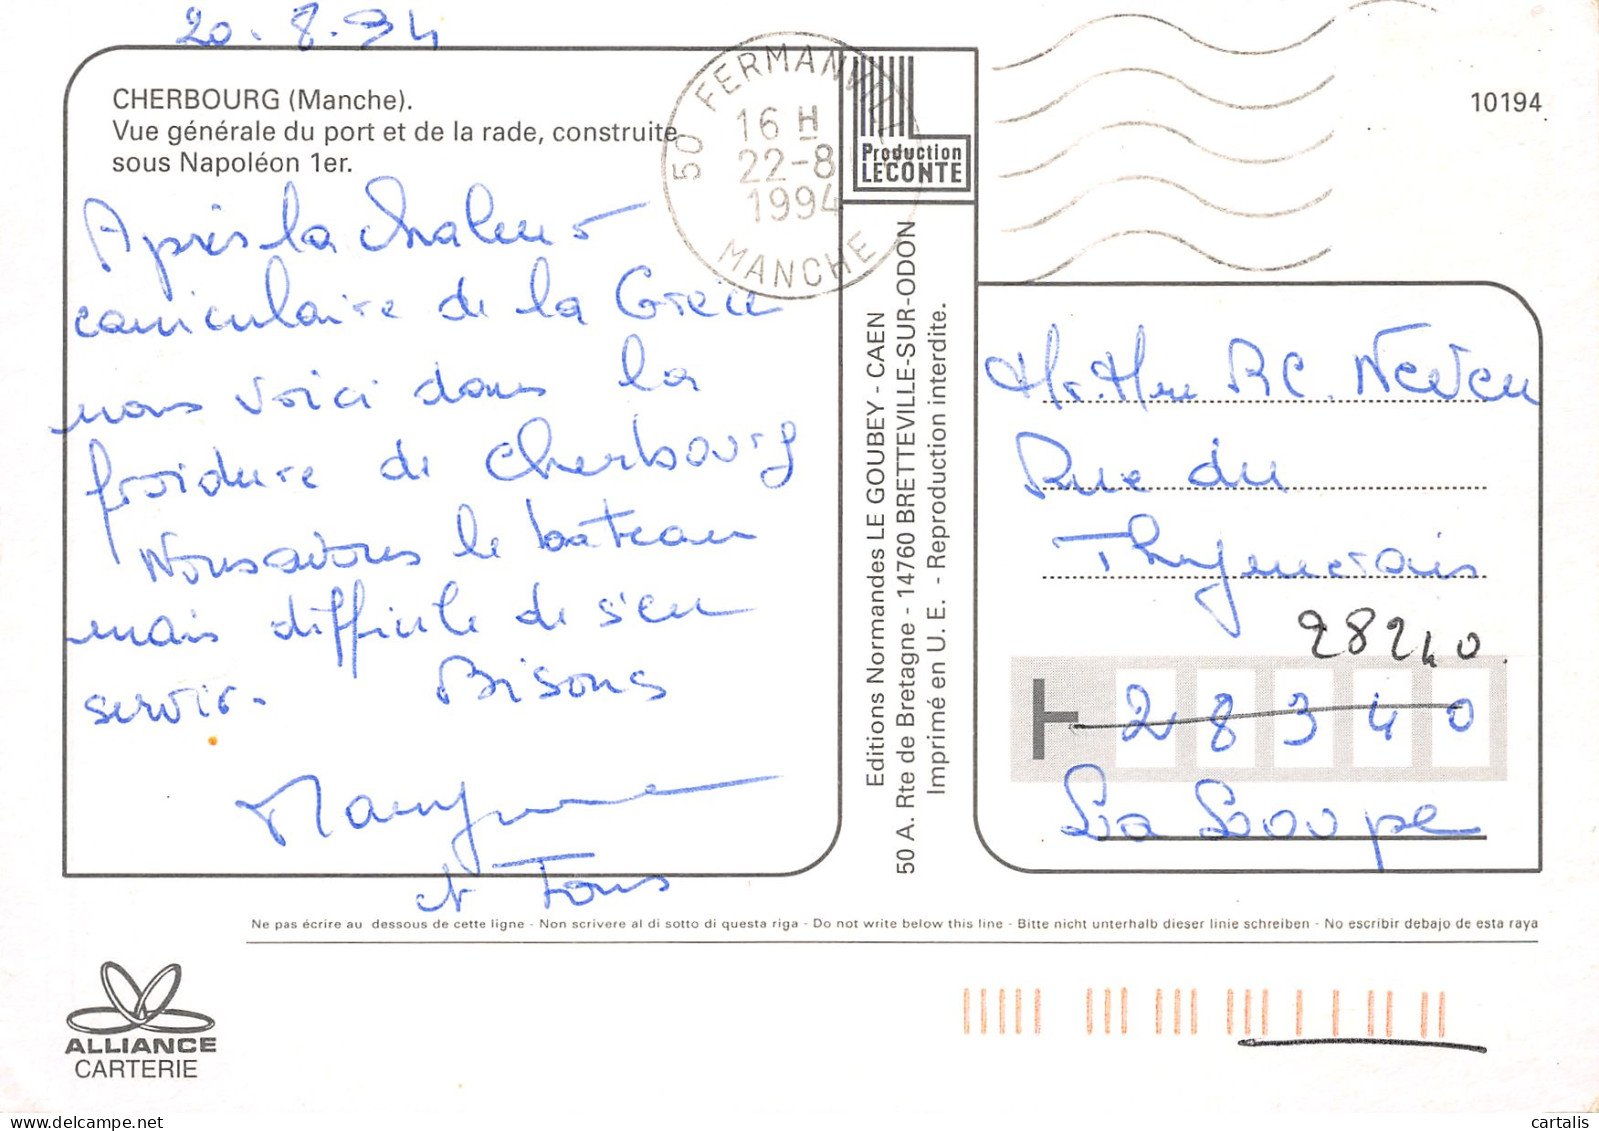 20.8.94
CHERBOURG (Manche).
Vue générale du port et de la rade, construite
sous Napoléon 1er.
Après la chaleur
caniculaire de la Grèce
nous voici dans la
froidure de Cherbourg
Nous avons le bateau
mais difficile de s'en
servir. Bisous
et Tous
50 FERMANVILLE
16 H
22-8
1994
MANCHE
Production
LECONTE
Editions Normandes LE GOUBEY - CAEN
50 A. Rte de Bretagne - 14760 BRETTEVILLE-SUR-ODON
Imprimé en U. E. - Reproduction interdite.
10194
Mr. Mme P.C. Neveu
Rue du
Thymerais
28240
28340
La Loupe
Ne pas écrire au dessous de cette ligne - Non scrivere al di sotto di questa riga - Do not write below this line - Bitte nicht unterhalb dieser linie schreiben - No escribir debajo de esta raya
ALLIANCE
CARTERIE
cartalis